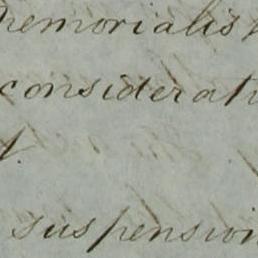 memorialis
considerati
suspension